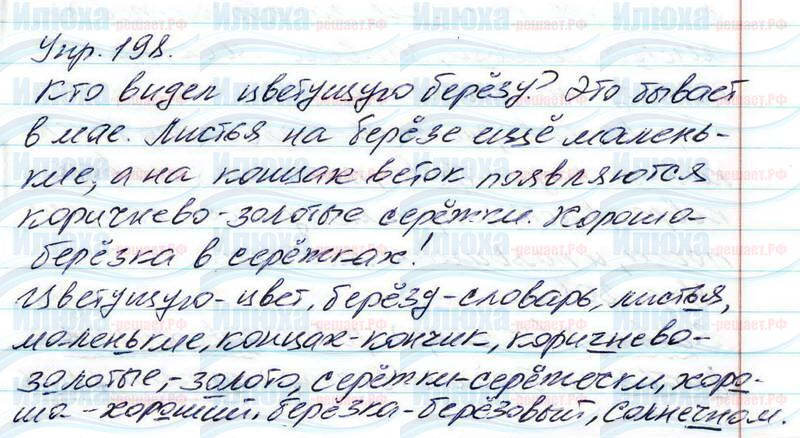 Упр. 198.
Кто видел цветущую берёзу? Это бывает
в мае. Листья на берёзе ещё малень-
кие, а на концах веток появляются
коричнево-золотые серёжки. Хороша
берёзка в серёжках!
Цветущую - цвет, берёзу - словарь, листья,
маленькие, концах - кончик, коричнево-
золотые, - золото, серёжки - серёжечки, хоро-
ша - хороший, берёзка - берёзовый, солнечном.
Илюха-решает.РФ